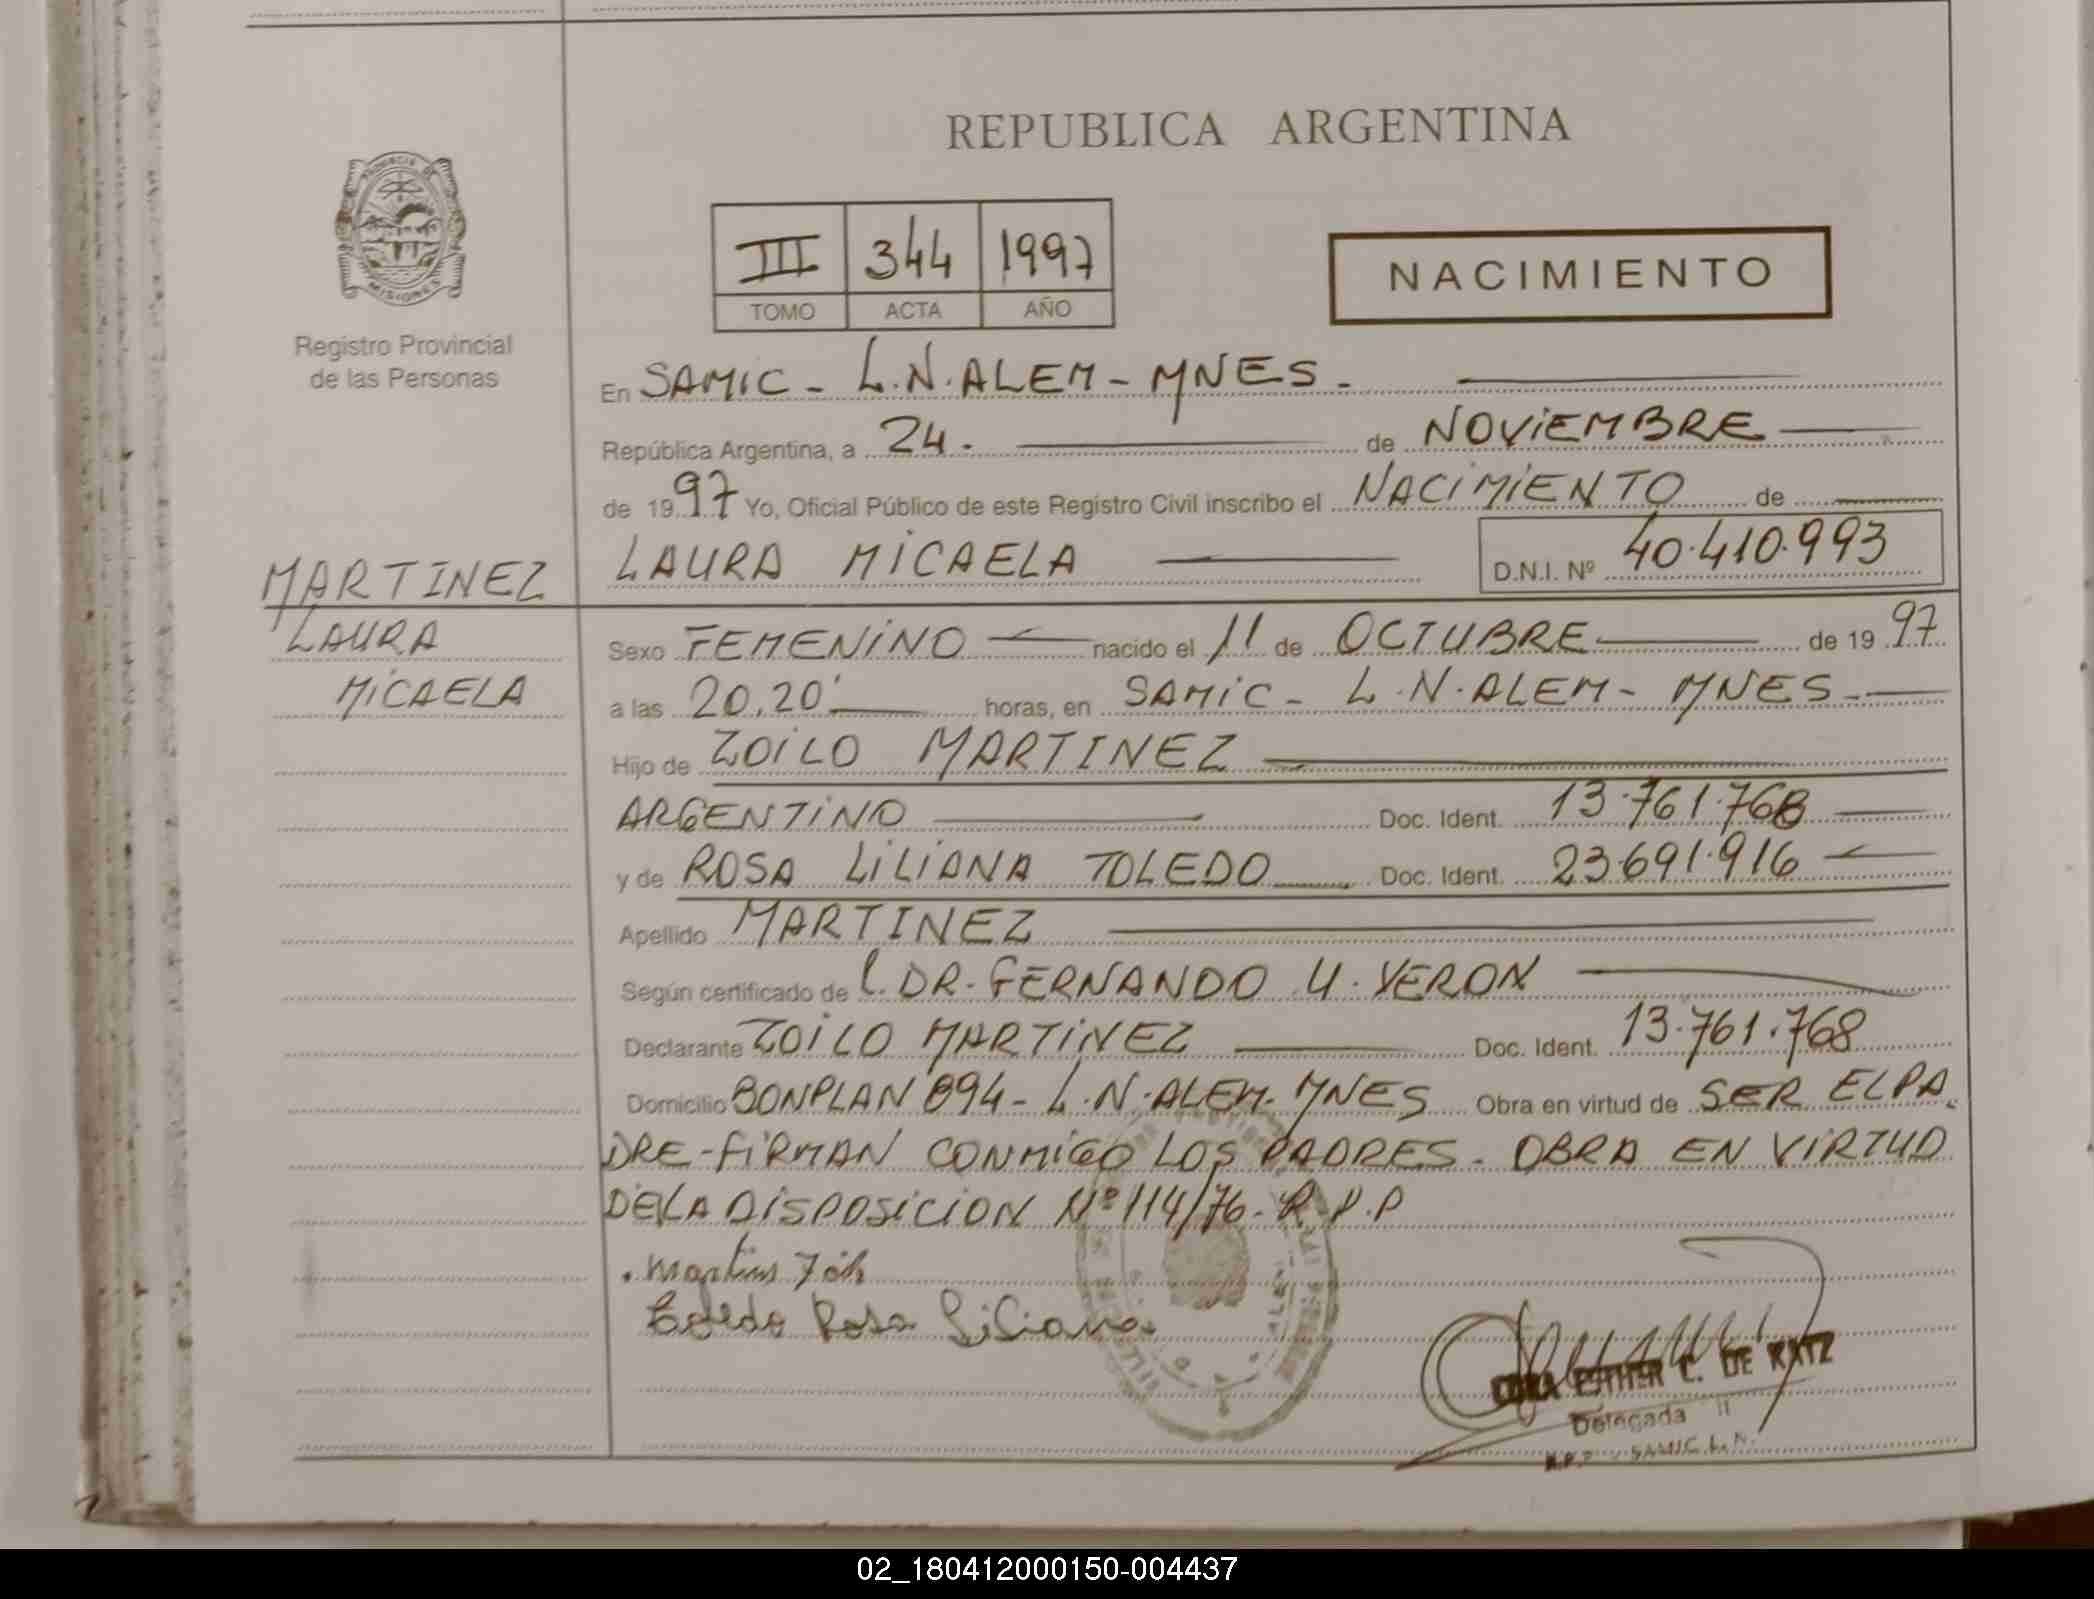 REPUBLICA ARGENTINA
PROVINCIA DE
MISIONES
III 344 1997
TOMO ACTA AÑO
NACIMIENTO
Registro Provincial
de las Personas
En SAMIC - L.N.ALEM - MNES.
República Argentina, a 24. de NOVIEMBRE
de 1997 Yo, Oficial Público de este Registro Civil inscribo el NACIMIENTO de
LAURA MICAELA D.N.I. Nº 40.410.993
MARTINEZ
LAURA
MICAELA
Sexo FEMENINO nacido el 11 de OCTUBRE de 1997
a las 20,20' horas, en SAMIC - L.N.ALEM - MNES.
Hijo de ZOILO MARTINEZ
ARGENTINO Doc. Ident. 13.761.768
y de ROSA LILIANA TOLEDO Doc. Ident. 23.691.916
Apellido MARTINEZ
Según certificado de DR. FERNANDO YERON
Declarante ZOILO MARTINEZ Doc. Ident. 13.761.768
Domicilio BONPLAN 894 - L.N.ALEM - MNES Obra en virtud de SER EL PA
DRE - FIRMAN CONMIGO LOS PADRES - OBRA EN VIRTUD
DE LA DISPOSICION Nº 114/76 - R.P.P
Toledo Rosa Liliana
ESTHER C. DE KATZ
Delegada II
R.P.P. SAMIC L.N.
02_180412000150-004437